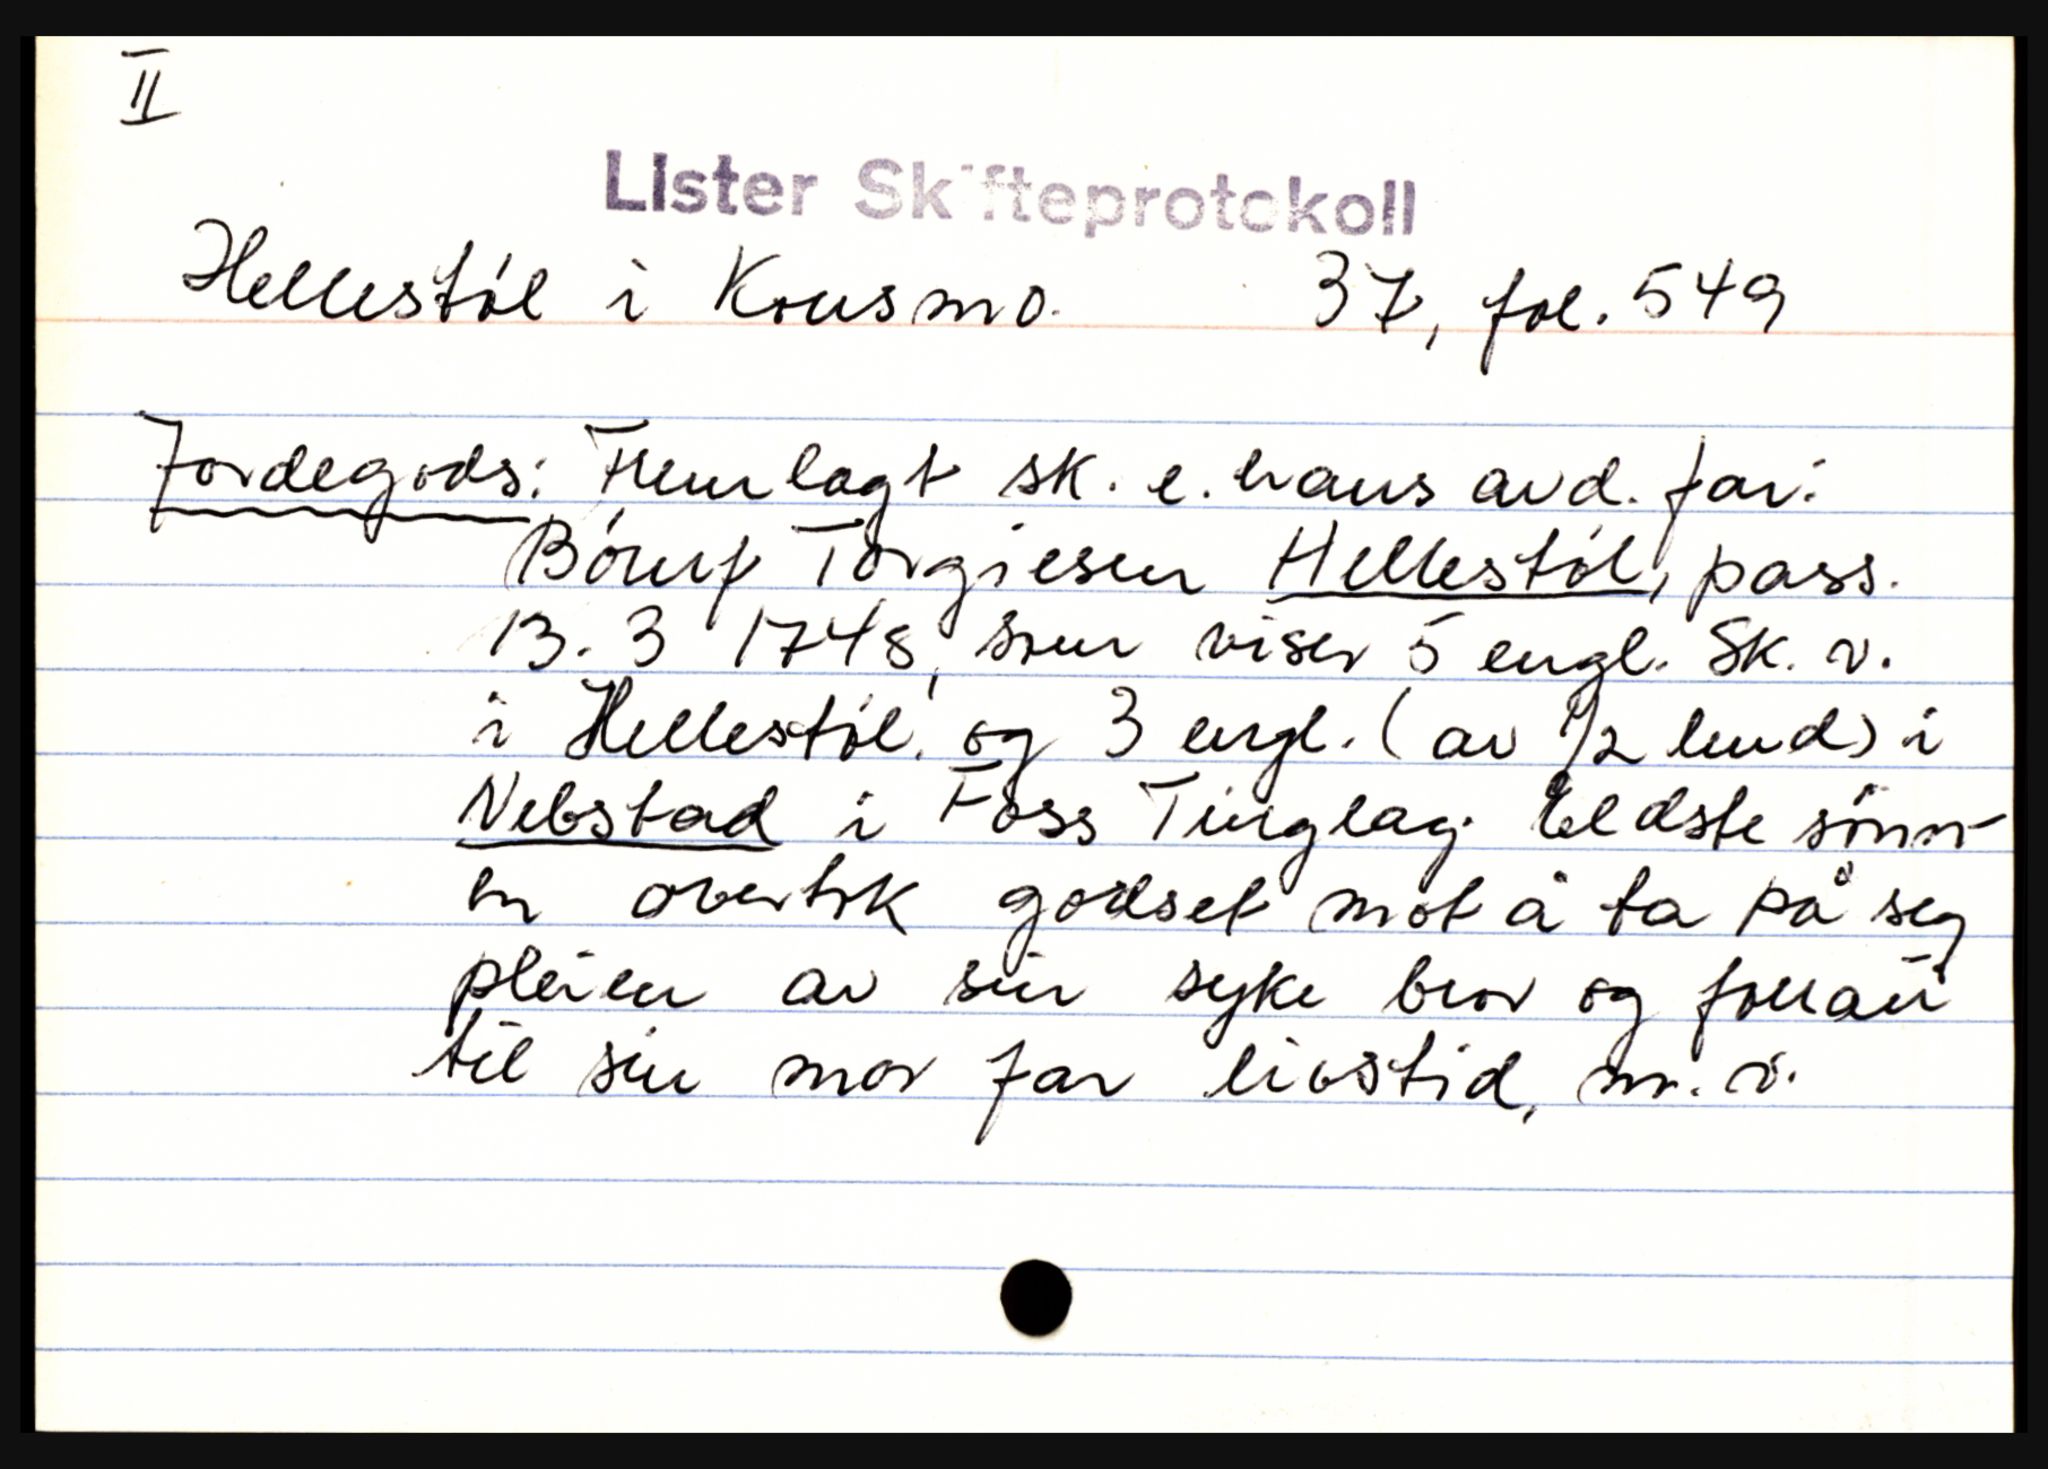 II
Lister Skifteprotokoll
Hellestøl i Konsmo. 37, fol. 549
Jordegods: Fremlagt sk. e. hans avd. far:
Børuf Torgiesen Hellestøl, pass.
13. 3 1748, som viser 5 engl. Sk. v.
i Hellestøl, og 3 engl. (av 1/2 hud) i
Nebstad i Foss Tinglag. Eldste sønn-
en overtok godset mot å ta på seg
pleien av sin syke bror og
til sin mor for livstid, m. v.